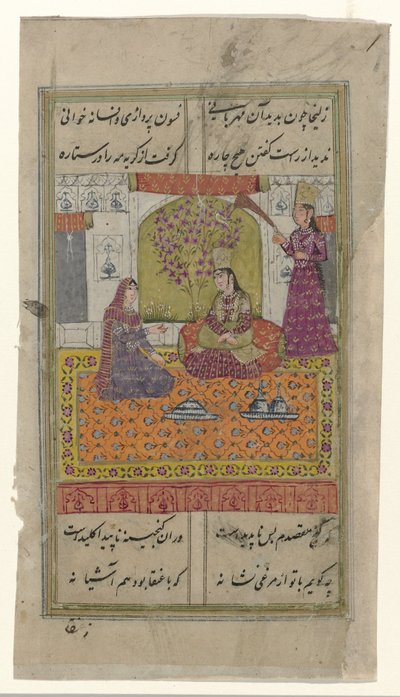 زلیخا چون بدید آن مهربانی فسون پردازی و افسانه خوانی
ندید از راست گفتن هیچ چاره گرفت از گریه مه را در ستاره
که گنج مقصدم بس ناپدیدست وران گنجینه ناپیدا کلیدست
چه گویم با تو از مرغی نشانه که با عنقا بود هم آشیانه
ز عنقا